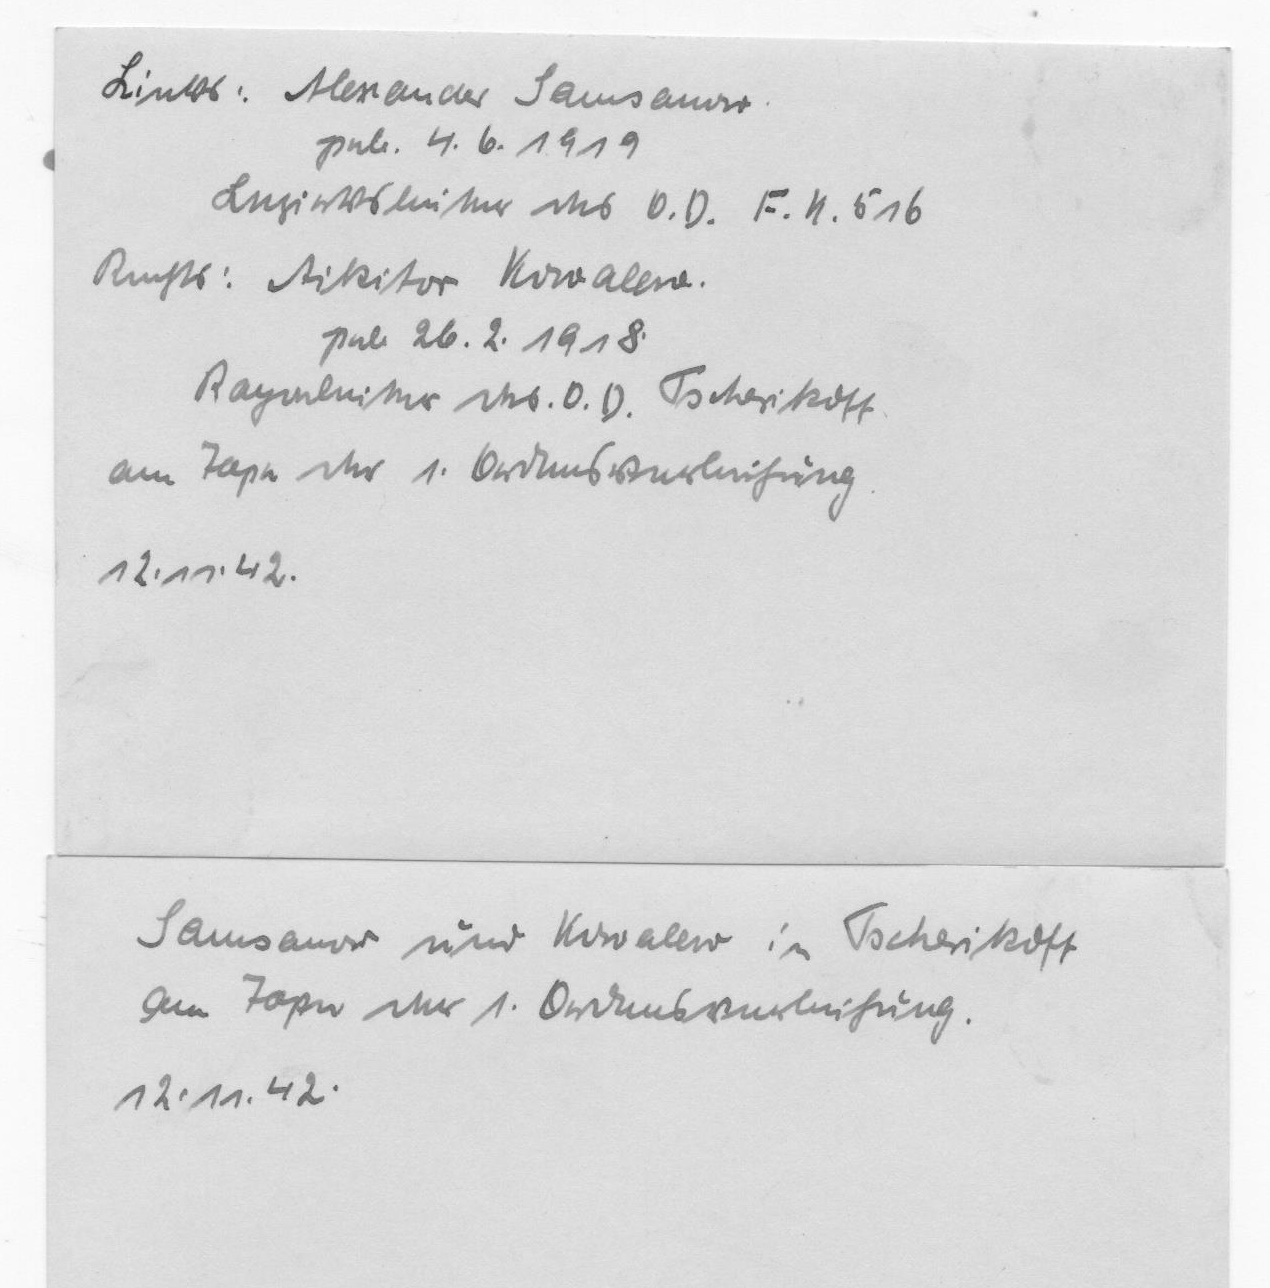 Links: Alexander Samsanow.
geb. 4. 6. 1919
Bezirksleiter des O.D. F.K. 516
Rechts: Nikitor Kowalew.
geb 26. 2. 1918.
Rayonleiter des. O.D. Tscherikoff.
am Tage der 1. Ordensverleihung.
12.11.42.
Samsanow und Kowalew in Tscherikoff
am Tage der 1. Ordensverleihung.
12.11.42.